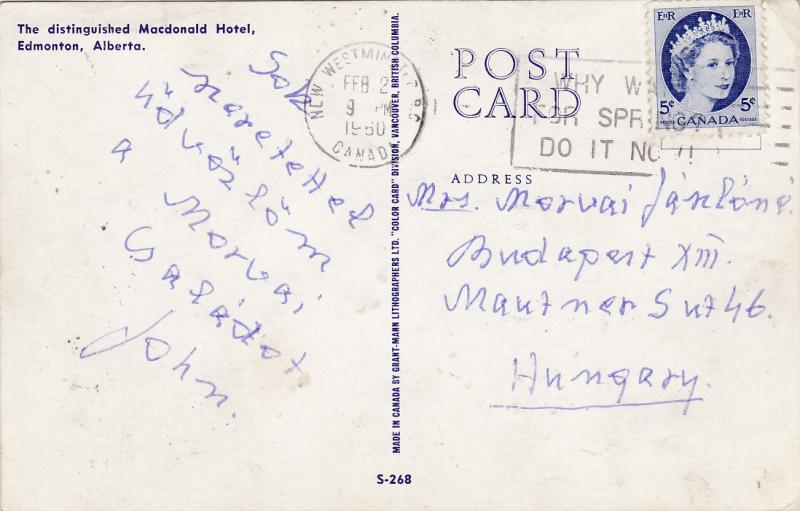 The distinguished Macdonald Hotel,
Edmonton, Alberta.
Sok
szeretettel
üdvözlöm
a Morvai
Családot.
John.
MADE IN CANADA BY GRANT-MANN LITHOGRAPHERS LTD. "COLOR CARD" DIVISION, VANCOUVER, BRITISH COLUMBIA.
S-268
POST
CARD
NEW WESTMINSTER B.C.
FEB 2
9 PM
1960
CANADA
WHY WA
FOR SPR
DO IT NOW!
EIIR EIIR
5¢ 5¢
POSTES CANADA POSTAGE
ADDRESS
Mrs. Morvai Jánosné.
Budapest XIII.
Mautner S ut 46.
Hungary.